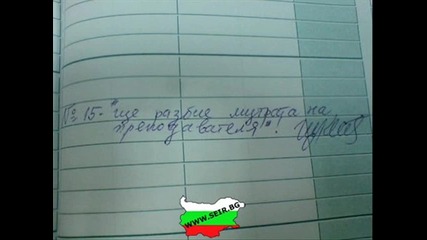 № 15 - "ще разбие мутрата на
преподавателя".
WWW.SEIR.BG